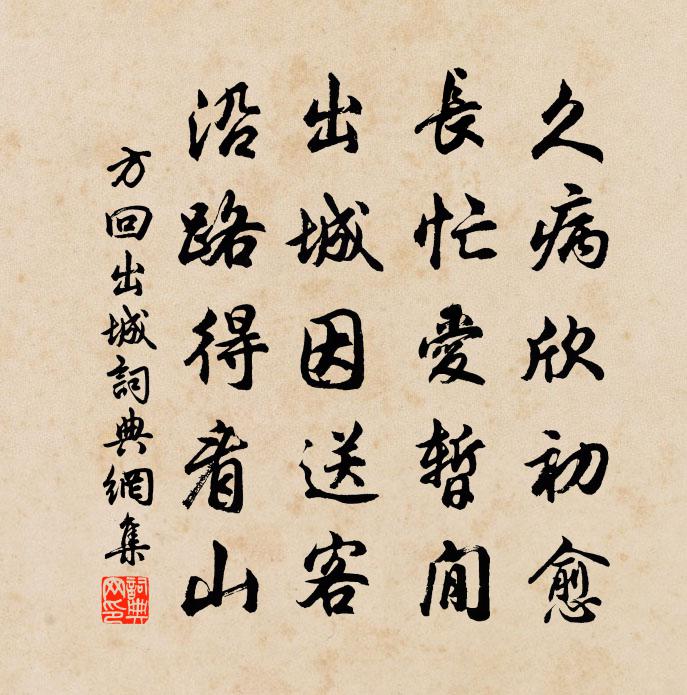 久病欣初愈
長忙愛暫閒
出城因送客
沿路得看山
方回出城詞典網集
詞典
网印